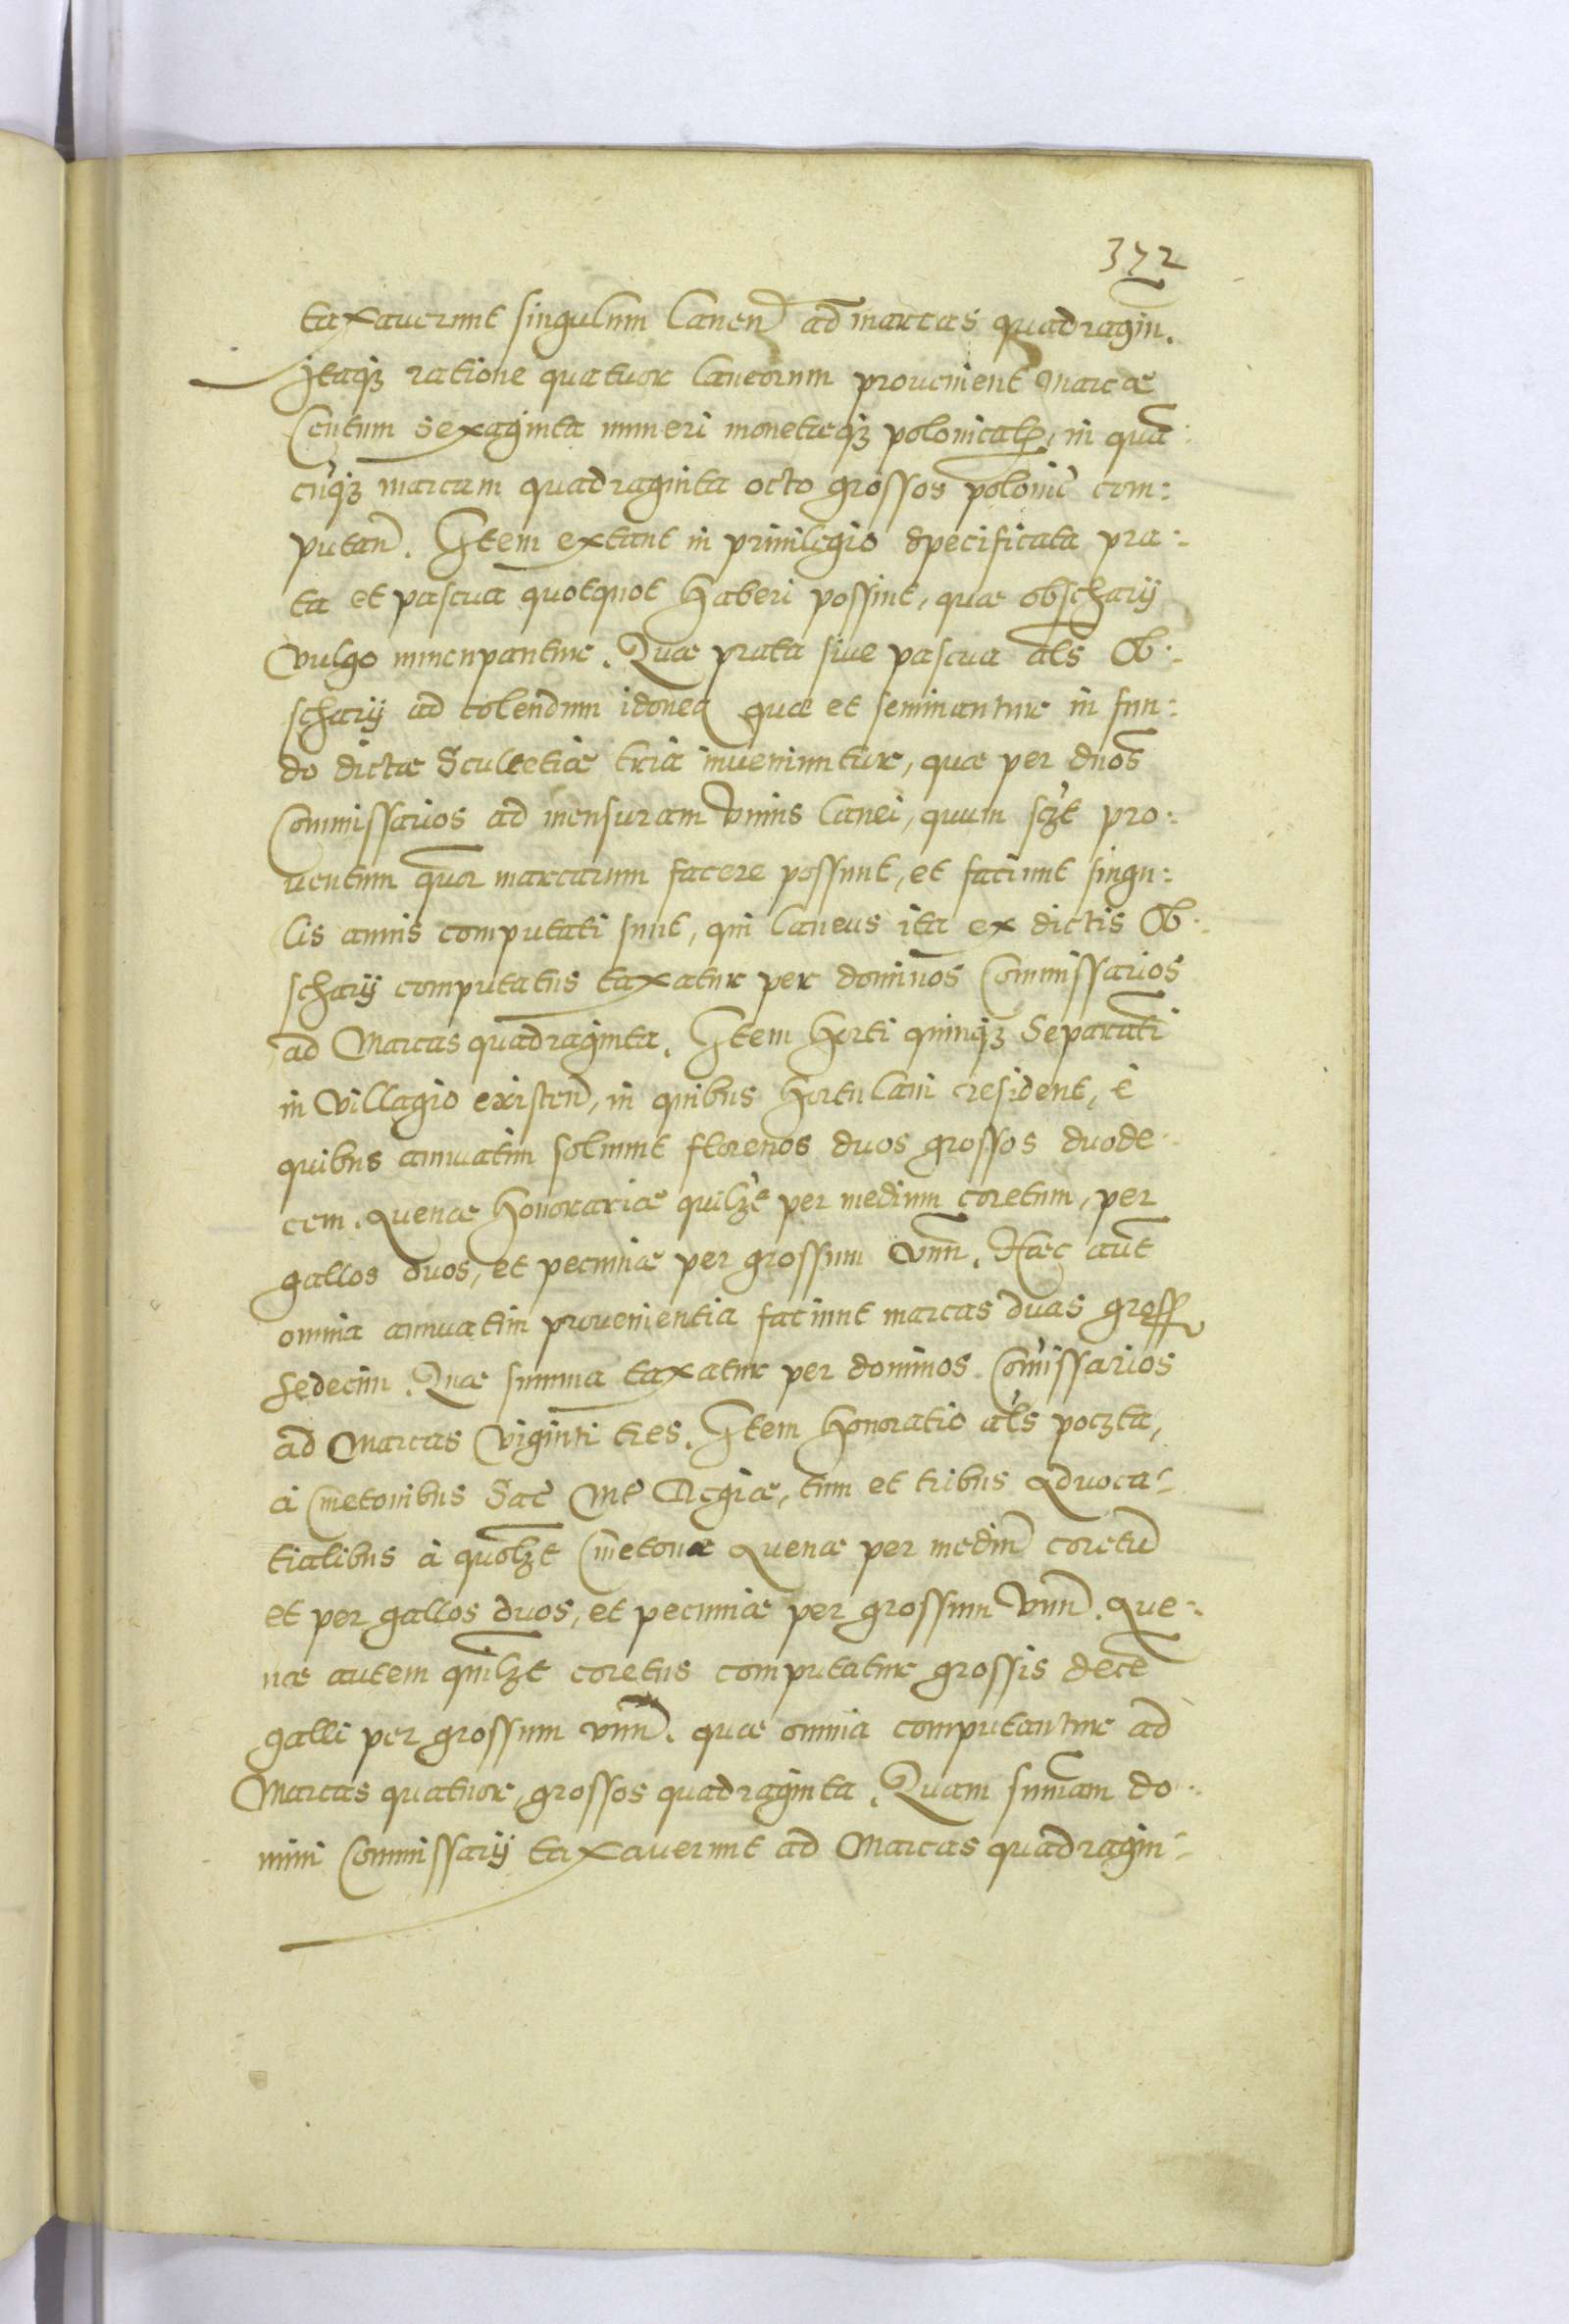 372
taxauerunt singulum laneū ad marcas quadragin.
Itaqz ratione quatuor laneorum prouenient Marcæ
Centum sexaginta numeri monetæqz polonicalis, in quā:
cūqz marcam quadraginta octo grossos polonic̄ com:
putan̄. Item extant in priuilegio specificata pra:
ta et pascua quotquot haberi possint, quæ obscharij
vulgo nuncupantur. Quæ prata siue pascua als Ob:
scharij ad colendum idonea quæ et seminantur in fun:
do dictæ Scultetiæ tria inueniuntur, quæ per dnōs
Commissarios ad mensuram vnius lanei, quum sczt pro:
uentum quor marcarum facere possunt, et faciunt singu:
lis annis computati sunt, qui laneus ita ex dictis Ob:
scharij computatus taxatur per dominos Commissarios
ad Marcas quadraginta. Item Horti quinqz Separati
in Villagio existen̄, in quibus Hortulani resident, è
quibus annuatim soluunt florenos duos grossos duode:
cem. Auenæ honorariæ quilzt per medium coretum, per
gallos duos, et pecuniæ per grossum vnū. Hæc aūt
omnia annuatim prouenientia faciunt marcas duas gross
sedecim. Quæ summa taxatur per dominos Comissarios
ad Marcas Viginti tres. Item Honoratio als poczta,
à Cmetonibus Sac̄ Mt̄ Regiæ, tum et tribus Aduoca:
tialibus à quolzt Cmetone Auenæ per mediū coretū
et per gallos duos, et pecuniæ per grossum vnū. Aue:
næ autem quilzt coretus computatur grossis decē
galli per grossum vnū. quæ omnia computantur ad
Marcas quatuor, grossos quadraginta. Quam summam do:
mini Commissarij taxauerunt ad Marcas quadragin: